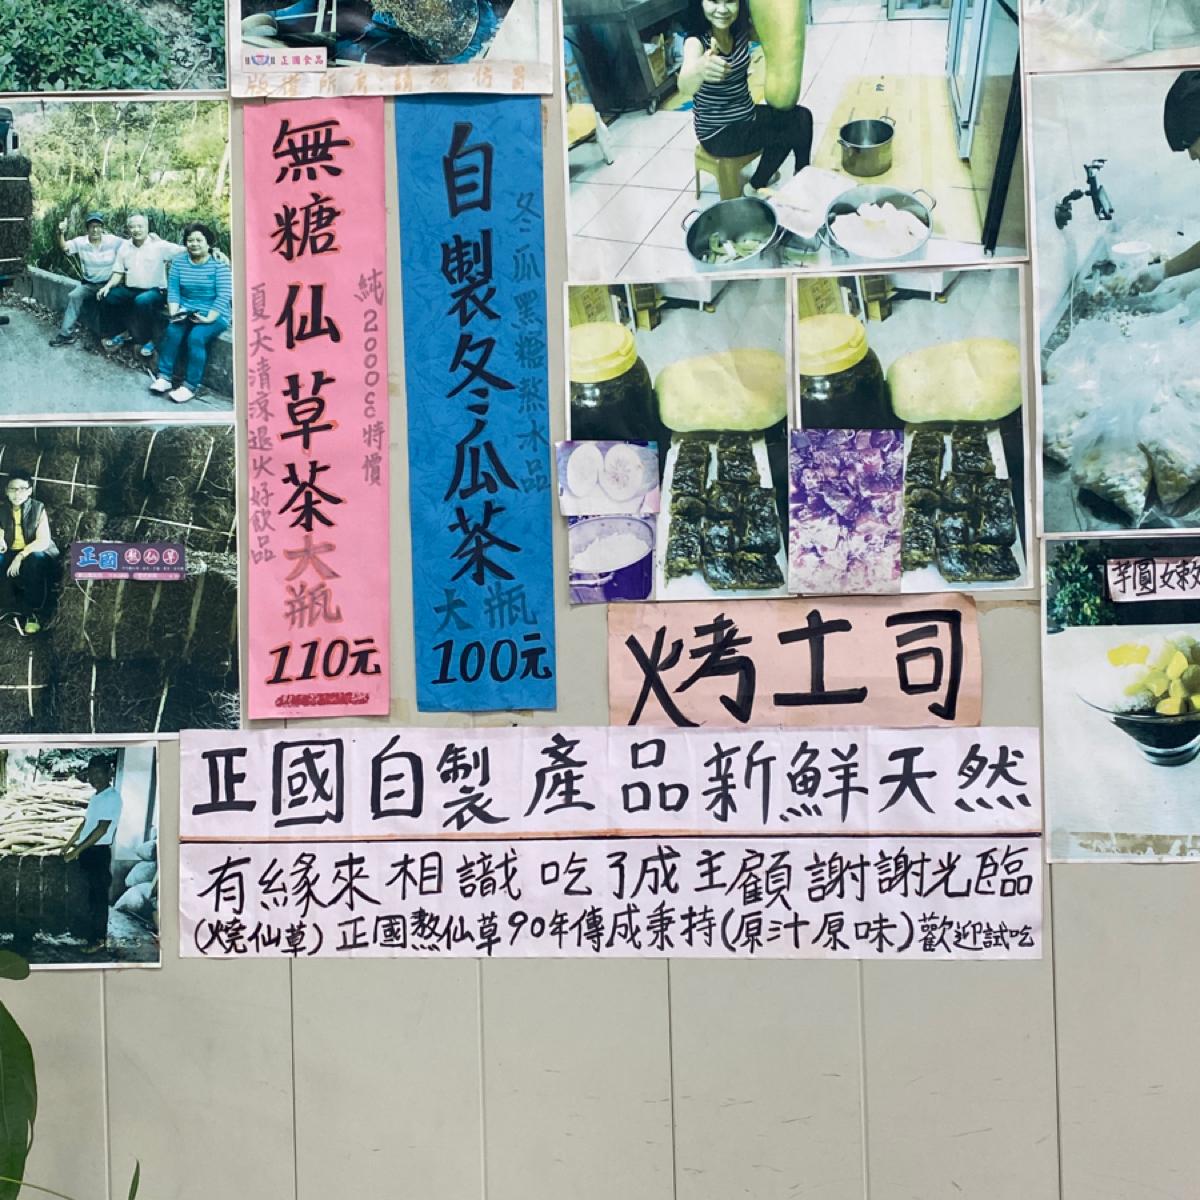 正國食品
版權所有請勿仿冒
無糖仙草茶大瓶
110元
純2000cc特價
夏天清涼退火好飲品
自製冬瓜茶大瓶
100元
冬瓜黑糖熬水品
正國熬仙草
芋圓嫩
烤土司
正國自製產品新鮮天然
有緣來相識吃了成主顧謝謝光臨
(燒仙草)正國熬仙草90年傳成秉持(原汁原味)歡迎試吃